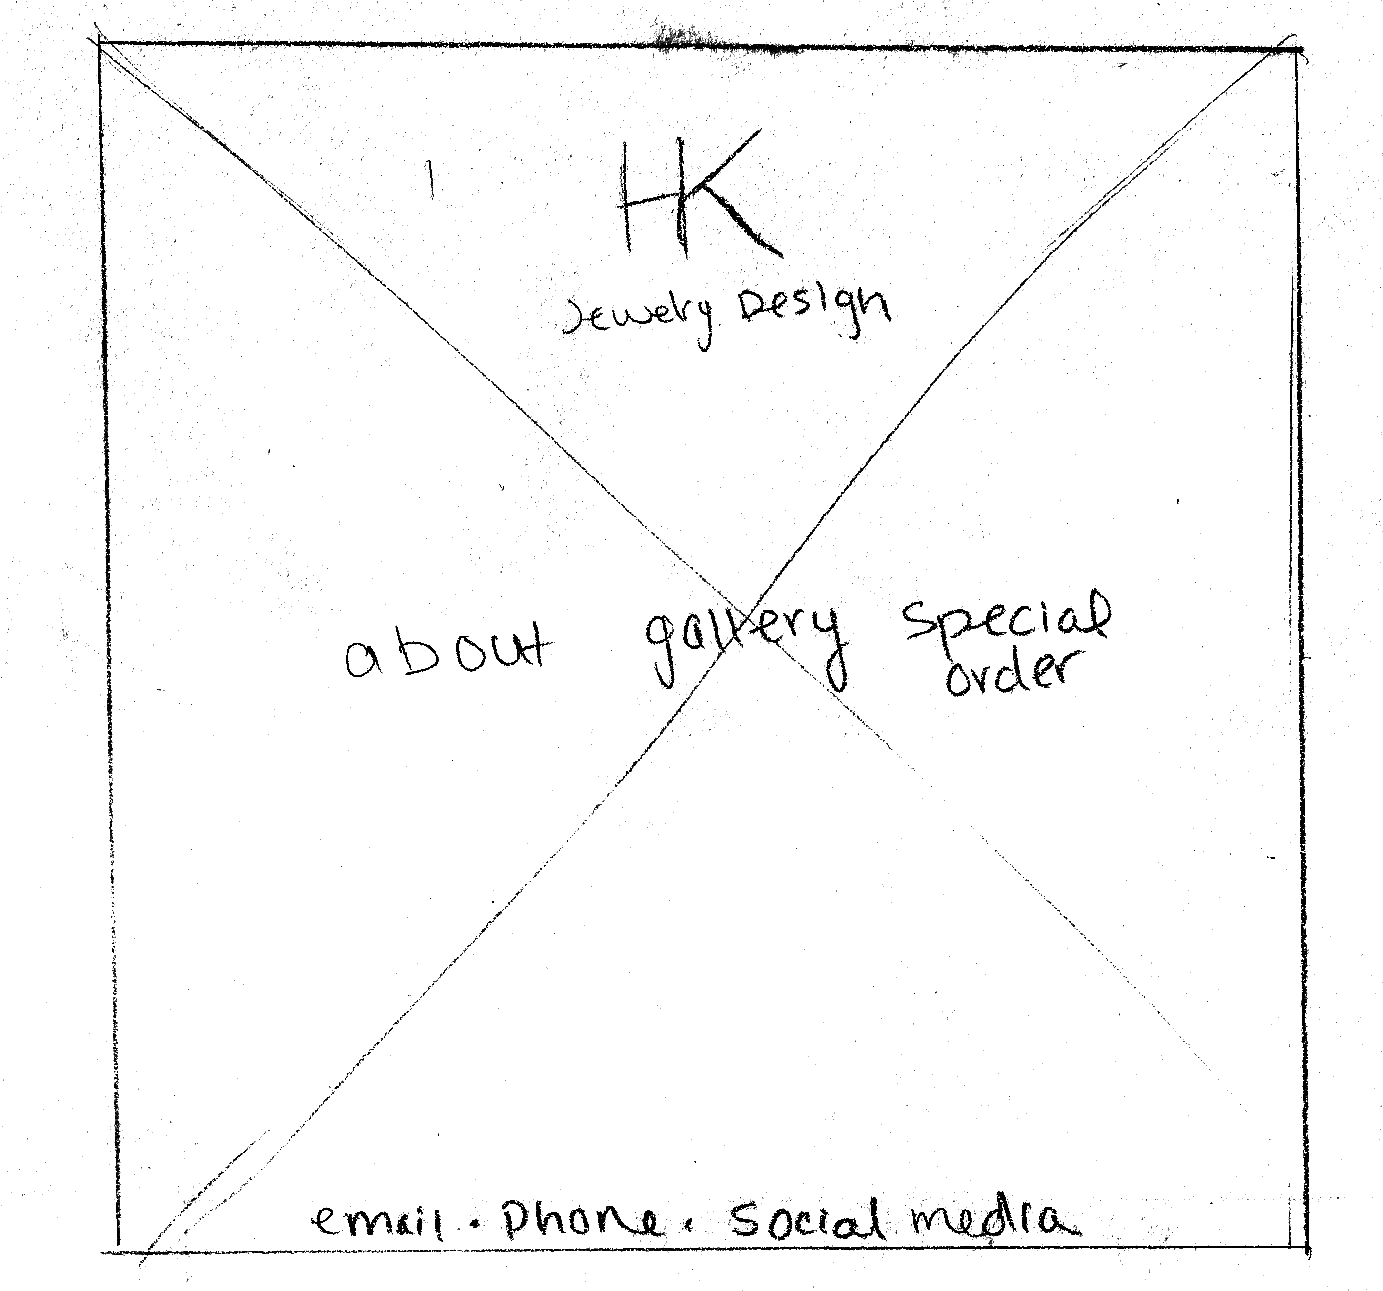 HK
Jewelry Design
about gallery special order
email · Phone · Social media